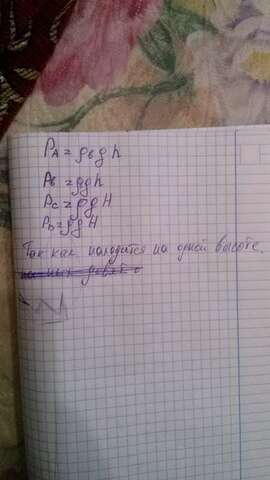 P_A = ρ_в g h
P_B = ρgh
P_C = ρgH
P_D = ρgH
Так как находятся на одной высоте.